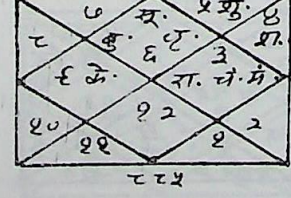 ७ सू. ५ शु. ४
८ बु. ६ वृ. ३ श.
९ के. रा. चं. मं.
१० १२ २
११ १
८८५